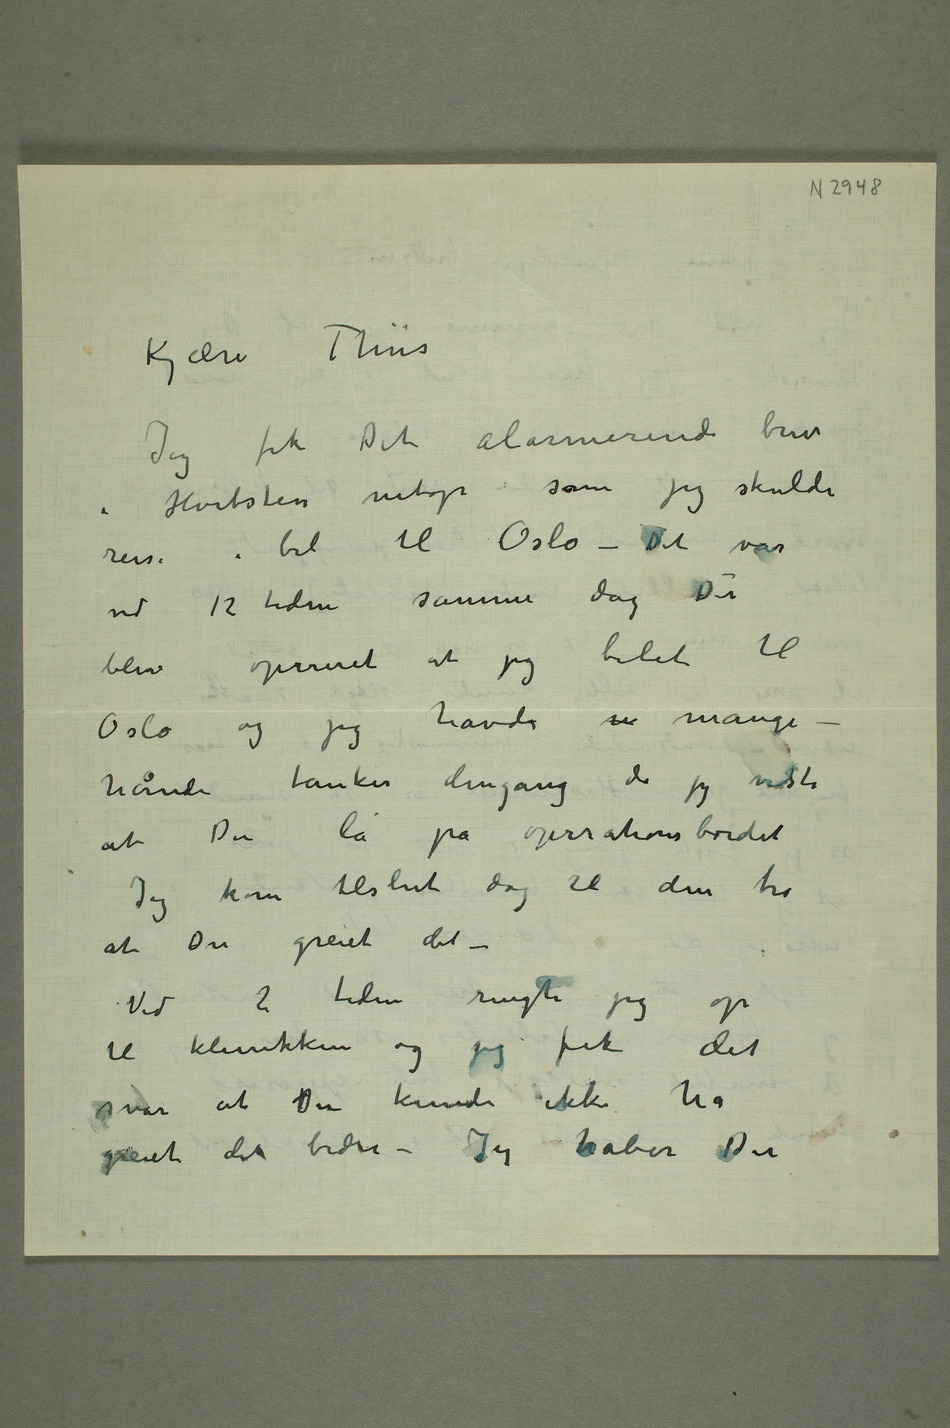 N 2948
Kjære Thiis
Jeg fik Det alarmerende brev
i Hvitsten netop som jeg skulde
reise i bil til Oslo – Det var
ved 12 tiden samme dag De
blev opereret at jeg bilet til
Oslo og jeg havde mange–
hånde tanker dengang da jeg vidste
at De lå på operationsbordet
Jeg kom tilslut dog til den tro
at De greiet det –
Ved 2 tiden ringte jeg op
til klinikken og jeg fik det
svar at De kunde ikke ha
greiet det bedre – Jeg håber De